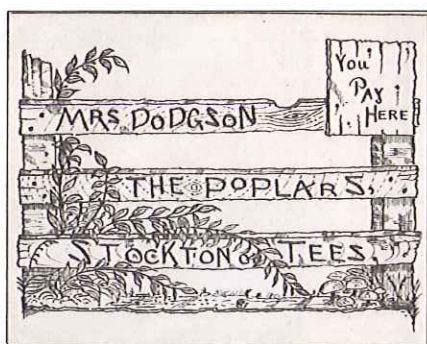 You
Pay
Here
MRS. DODGSON
THE POPLARS,
STOCKTON on TEES.